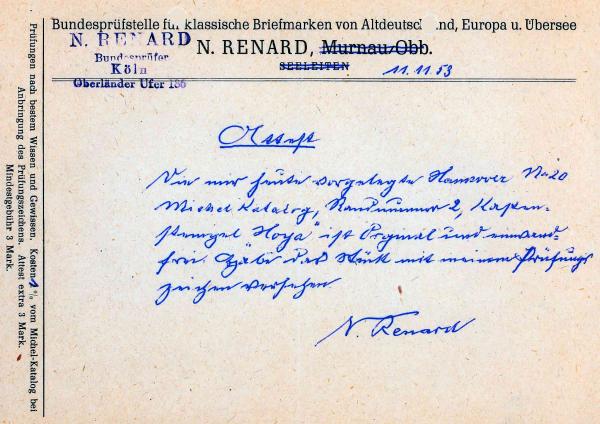 Bundesprüfstelle für klassische Briefmarken von Altdeutschland, Europa u. Übersee
N. RENARD
Bundesprüfer
Köln
Oberländer Ufer 186
N. RENARD, Murnau Obb.
SEELEITEN
11.11.53
Attest
Die mir heute vorgelegte Hannover No 20
Michel Katalog, Randnummer 2, Kasten-
stempel "Hoya" ist Original und einwand-
frei. Habe das Stück mit meinem Prüfungs
zeichen versehen
N. Renard
Prüfungen nach bestem Wissen und Gewissen. Kosten % vom Michel-Katalog bei
Anbringung des Prüfungszeichens. Attest extra 3 Mark.
Mindestgebühr 3 Mark.